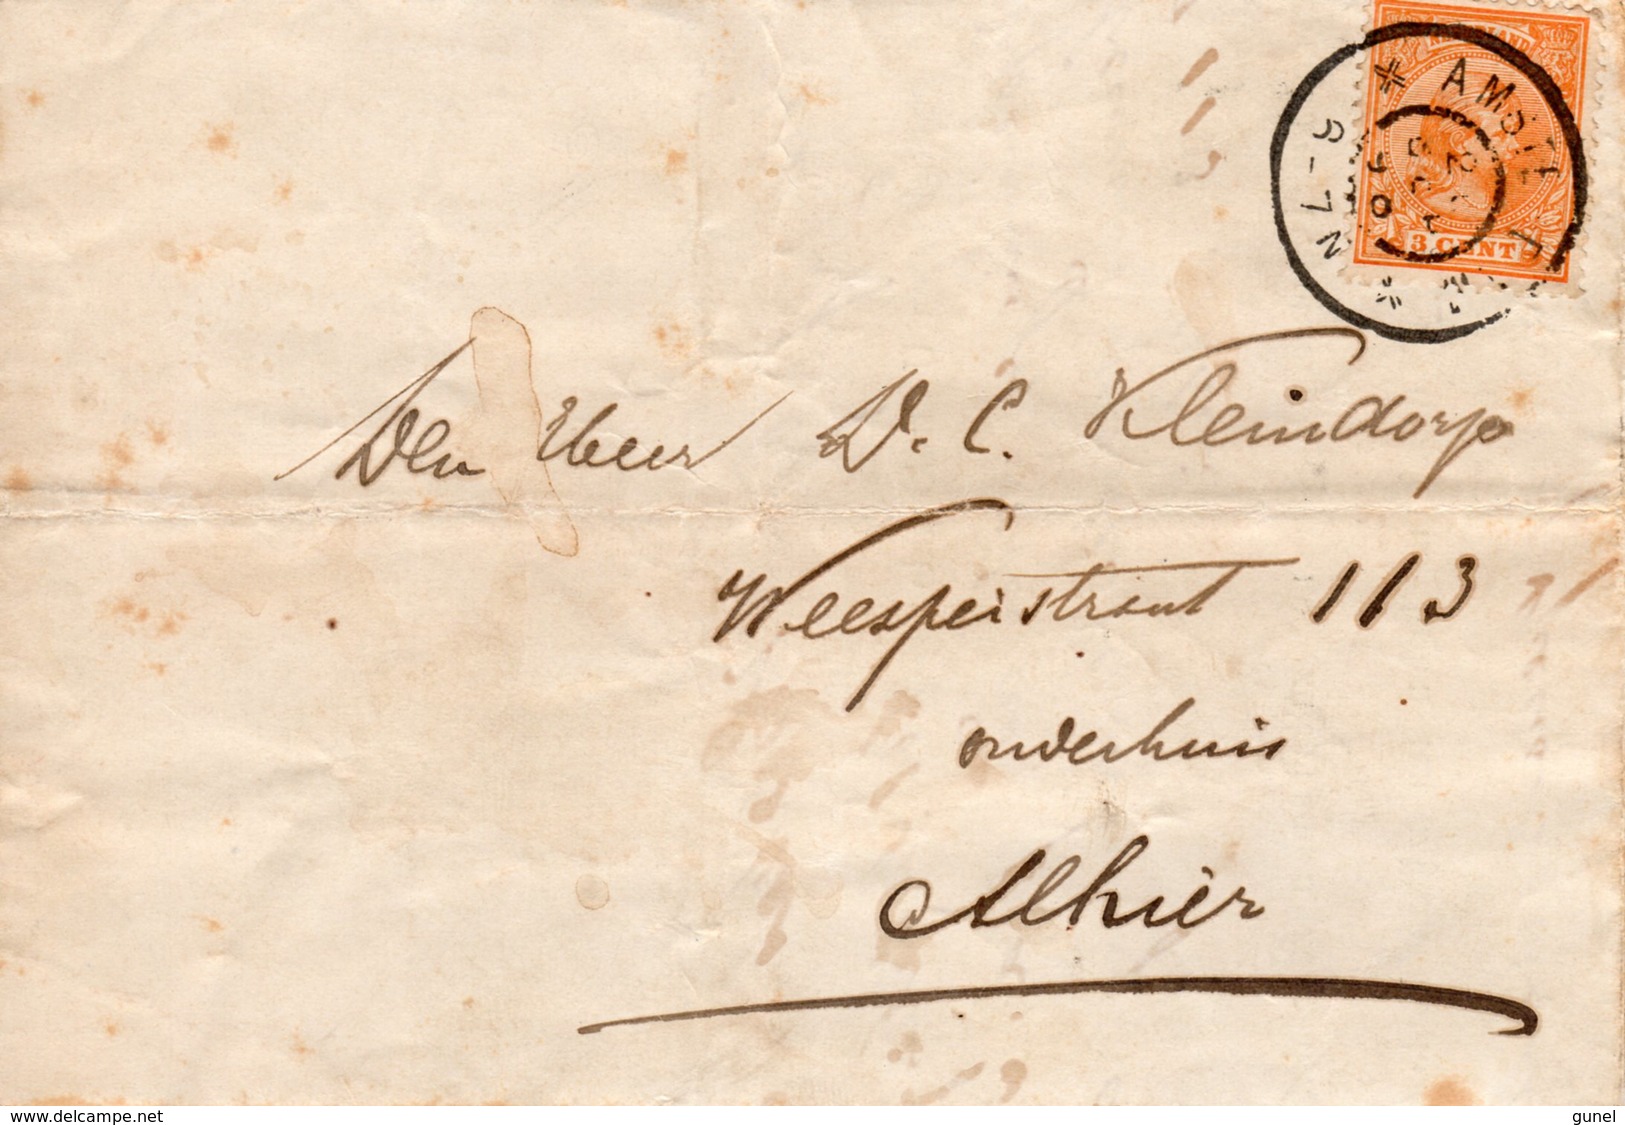 NEDERLAND
3 CENT
AMSTERDAM
6-7N
Den Heer D. C. Kleindorp
Weesperstraat 113
onderhuis
Alhier
www.delcampe.net
gunel